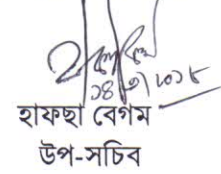 ১৪/৩/২০১৮
হাফছা বেগম
উপ-সচিব